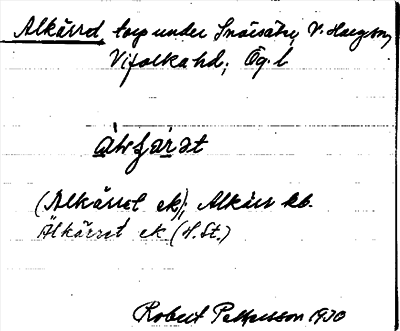 Alkärret torp under Snörsätter, V. Harg sn,
Vifolka hd; Ög. l.
(Alkärret ek); Alkärr kb.
Älkärret ek. (H.St.)
Robert Pettersson 1930